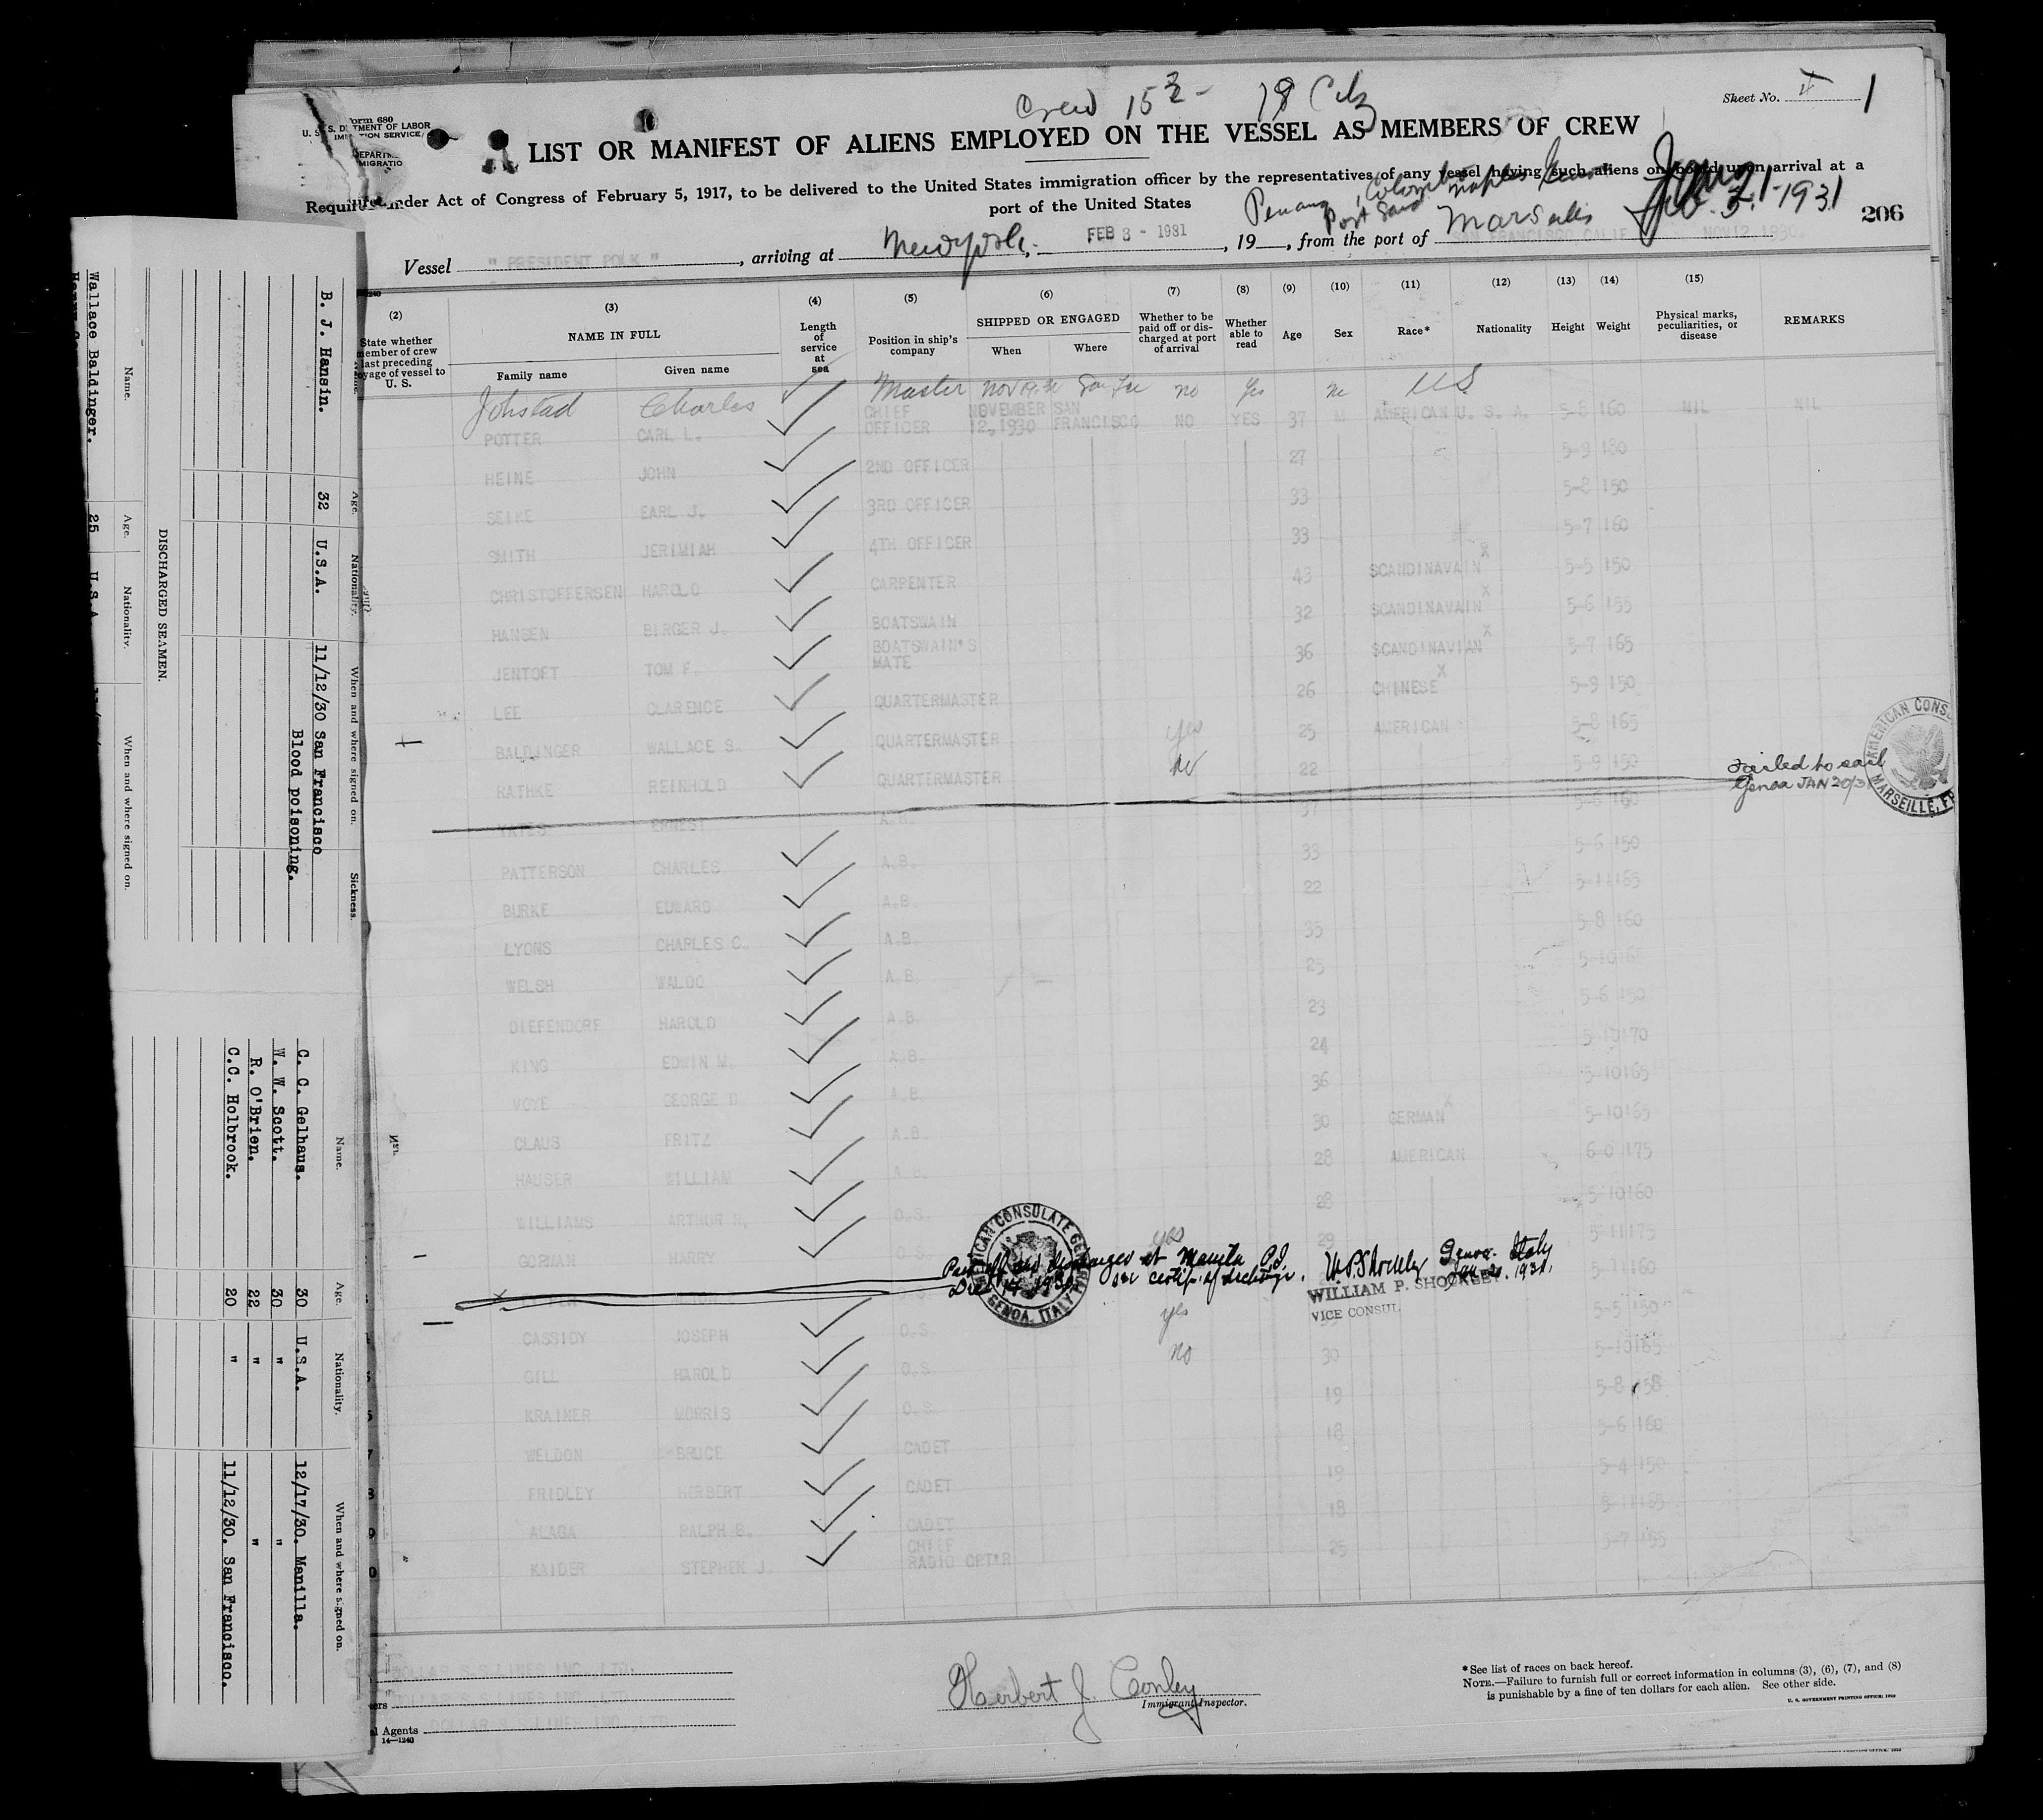 Crew 152 - 18 Citz
Sheet No. 1
Form 680
U. S. DEPARTMENT OF LABOR
IMMIGRATION SERVICE
LIST OR MANIFEST OF ALIENS EMPLOYED ON THE VESSEL AS MEMBERS OF CREW
Required under Act of Congress of February 5, 1917, to be delivered to the United States immigration officer by the representatives of any vessel having such aliens on board upon arrival at a
port of the United States
Penang, Colombo
Port Said Naples Genoa
206
Vessel "PRESIDENT POLK", arriving at New York, FEB 3 - 1931, 19, from the port of Marseilles SAN FRANCISCO CALIF NOV 12 1930
Jan 21 - 1931
(2) (3) (4) (5) (6) (7) (8) (9) (10) (11) (12) (13) (14) (15)
State whether member of crew last preceding voyage of vessel to U. S.
NAME IN FULL
Family name Given name
Length of service at sea
Position in ship's company
SHIPPED OR ENGAGED
When Where
Whether to be paid off or discharged at port of arrival
Whether able to read
Age Sex Race* Nationality Height Weight
Physical marks, peculiarities, or disease
REMARKS
Johstad Charles Master Nov 12 30 San Fra no Yes m US
POTTER CARL L. CHIEF OFFICER NOVEMBER 12, 1930 SAN FRANCISCO NO YES 37 M AMERICAN U. S. A. 5-8 160 NIL NIL
HEINE JOHN 2ND OFFICER 27 5-9 180
SEIKE EARL J. 3RD OFFICER 33 5-8 150
SMITH JERIMIAH 4TH OFFICER 33 5-7 160
CHRISTOFFERSEN HAROLD CARPENTER 43 SCANDINAVAIN X 5-5 150
HANSEN BIRGER J. BOATSWAIN 32 SCANDINAVAIN X 5-6 155
JENTOFT TOM F. BOATSWAIN'S MATE 36 SCANDINAVIAN X 5-7 165
LEE CLARENCE QUARTERMASTER 26 CHINESE X 5-9 150
BALDINGER WALLACE S. QUARTERMASTER yes 25 AMERICAN 5-8 165
RATHKE REINHOLD QUARTERMASTER no 22 5-9 150
ERNEST A.B. 37 5-6 160
Failed to sail
Genoa JAN 20/31
AMERICAN CONSULATE MARSEILLE, FRANCE
PATTERSON CHARLES A.B. 33 5-6 150
BURKE EDWARD A.B. 22 5-11 165
LYONS CHARLES C. A.B. 35 5-8 160
WELSH WALDO A.B. 25 5-10 165
DIEFENDORF HAROLD A.B. 23 5-6 150
KING EDWIN M. A.B. 24 5-10 170
VOYE GEORGE D. A.B. 36 5-10 165
CLAUS FRITZ A.B. 30 GERMAN X 5-10 165
HAUSER WILLIAM A.B. 28 AMERICAN 6-0 175
WILLIAMS ARTHUR R. O.S. 28 5-10 160
GORMAN HARRY O.S. yes 29 5-11 175
5-11 160
Paid off and discharged at Manila P.I.
Dec 17 1930 see certif. of discharge. W.P. Shockley Genoa Italy
Jan 20, 1931.
WILLIAM P. SHOCKLEY
VICE CONSUL
AMERICAN CONSULATE GENERAL GENOA, ITALY
CASSIDY JOSEPH O.S. yes 5-5 150
GILL HAROLD O.S. no 30 5-10 165
KRAIMER MORRIS O.S. 19 5-8 158
WELDON BRUCE CADET 18 5-6 160
FRIDLEY HERBERT CADET 19 5-4 150
ALAGA RALPH B. CADET 18 5-11 165
KAIDER STEPHEN J. CHIEF RADIO OPT'R 25 5-7 155
DOLLAR S.S. LINES INC. LTD.
Agents DOLLAR S.S. LINES INC. LTD
14—1240
Herbert J. Conley
Immigrant Inspector.
*See list of races on back hereof.
NOTE.—Failure to furnish full or correct information in columns (3), (6), (7), and (8)
is punishable by a fine of ten dollars for each alien. See other side.
U. S. GOVERNMENT PRINTING OFFICE: 1929
Name. Age. Nationality. When and where signed on. Sickness.
B. J. Hansin. 32 U.S.A. 11/12/30 San Francisco
Blood poisoning.
DISCHARGED SEAMEN.
Name. Age. Nationality. When and where signed on.
Wallace Baldinger. 25 U.S.A
Name. Age. Nationality. When and where signed on.
C. C. Gelhaus. 30 U.S.A. 12/17/30. Manilla.
W. W. Scott. 30 " "
R. O'Brien. 22 " "
C.C. Holbrook. 20 " 11/12/30. San Francisco.